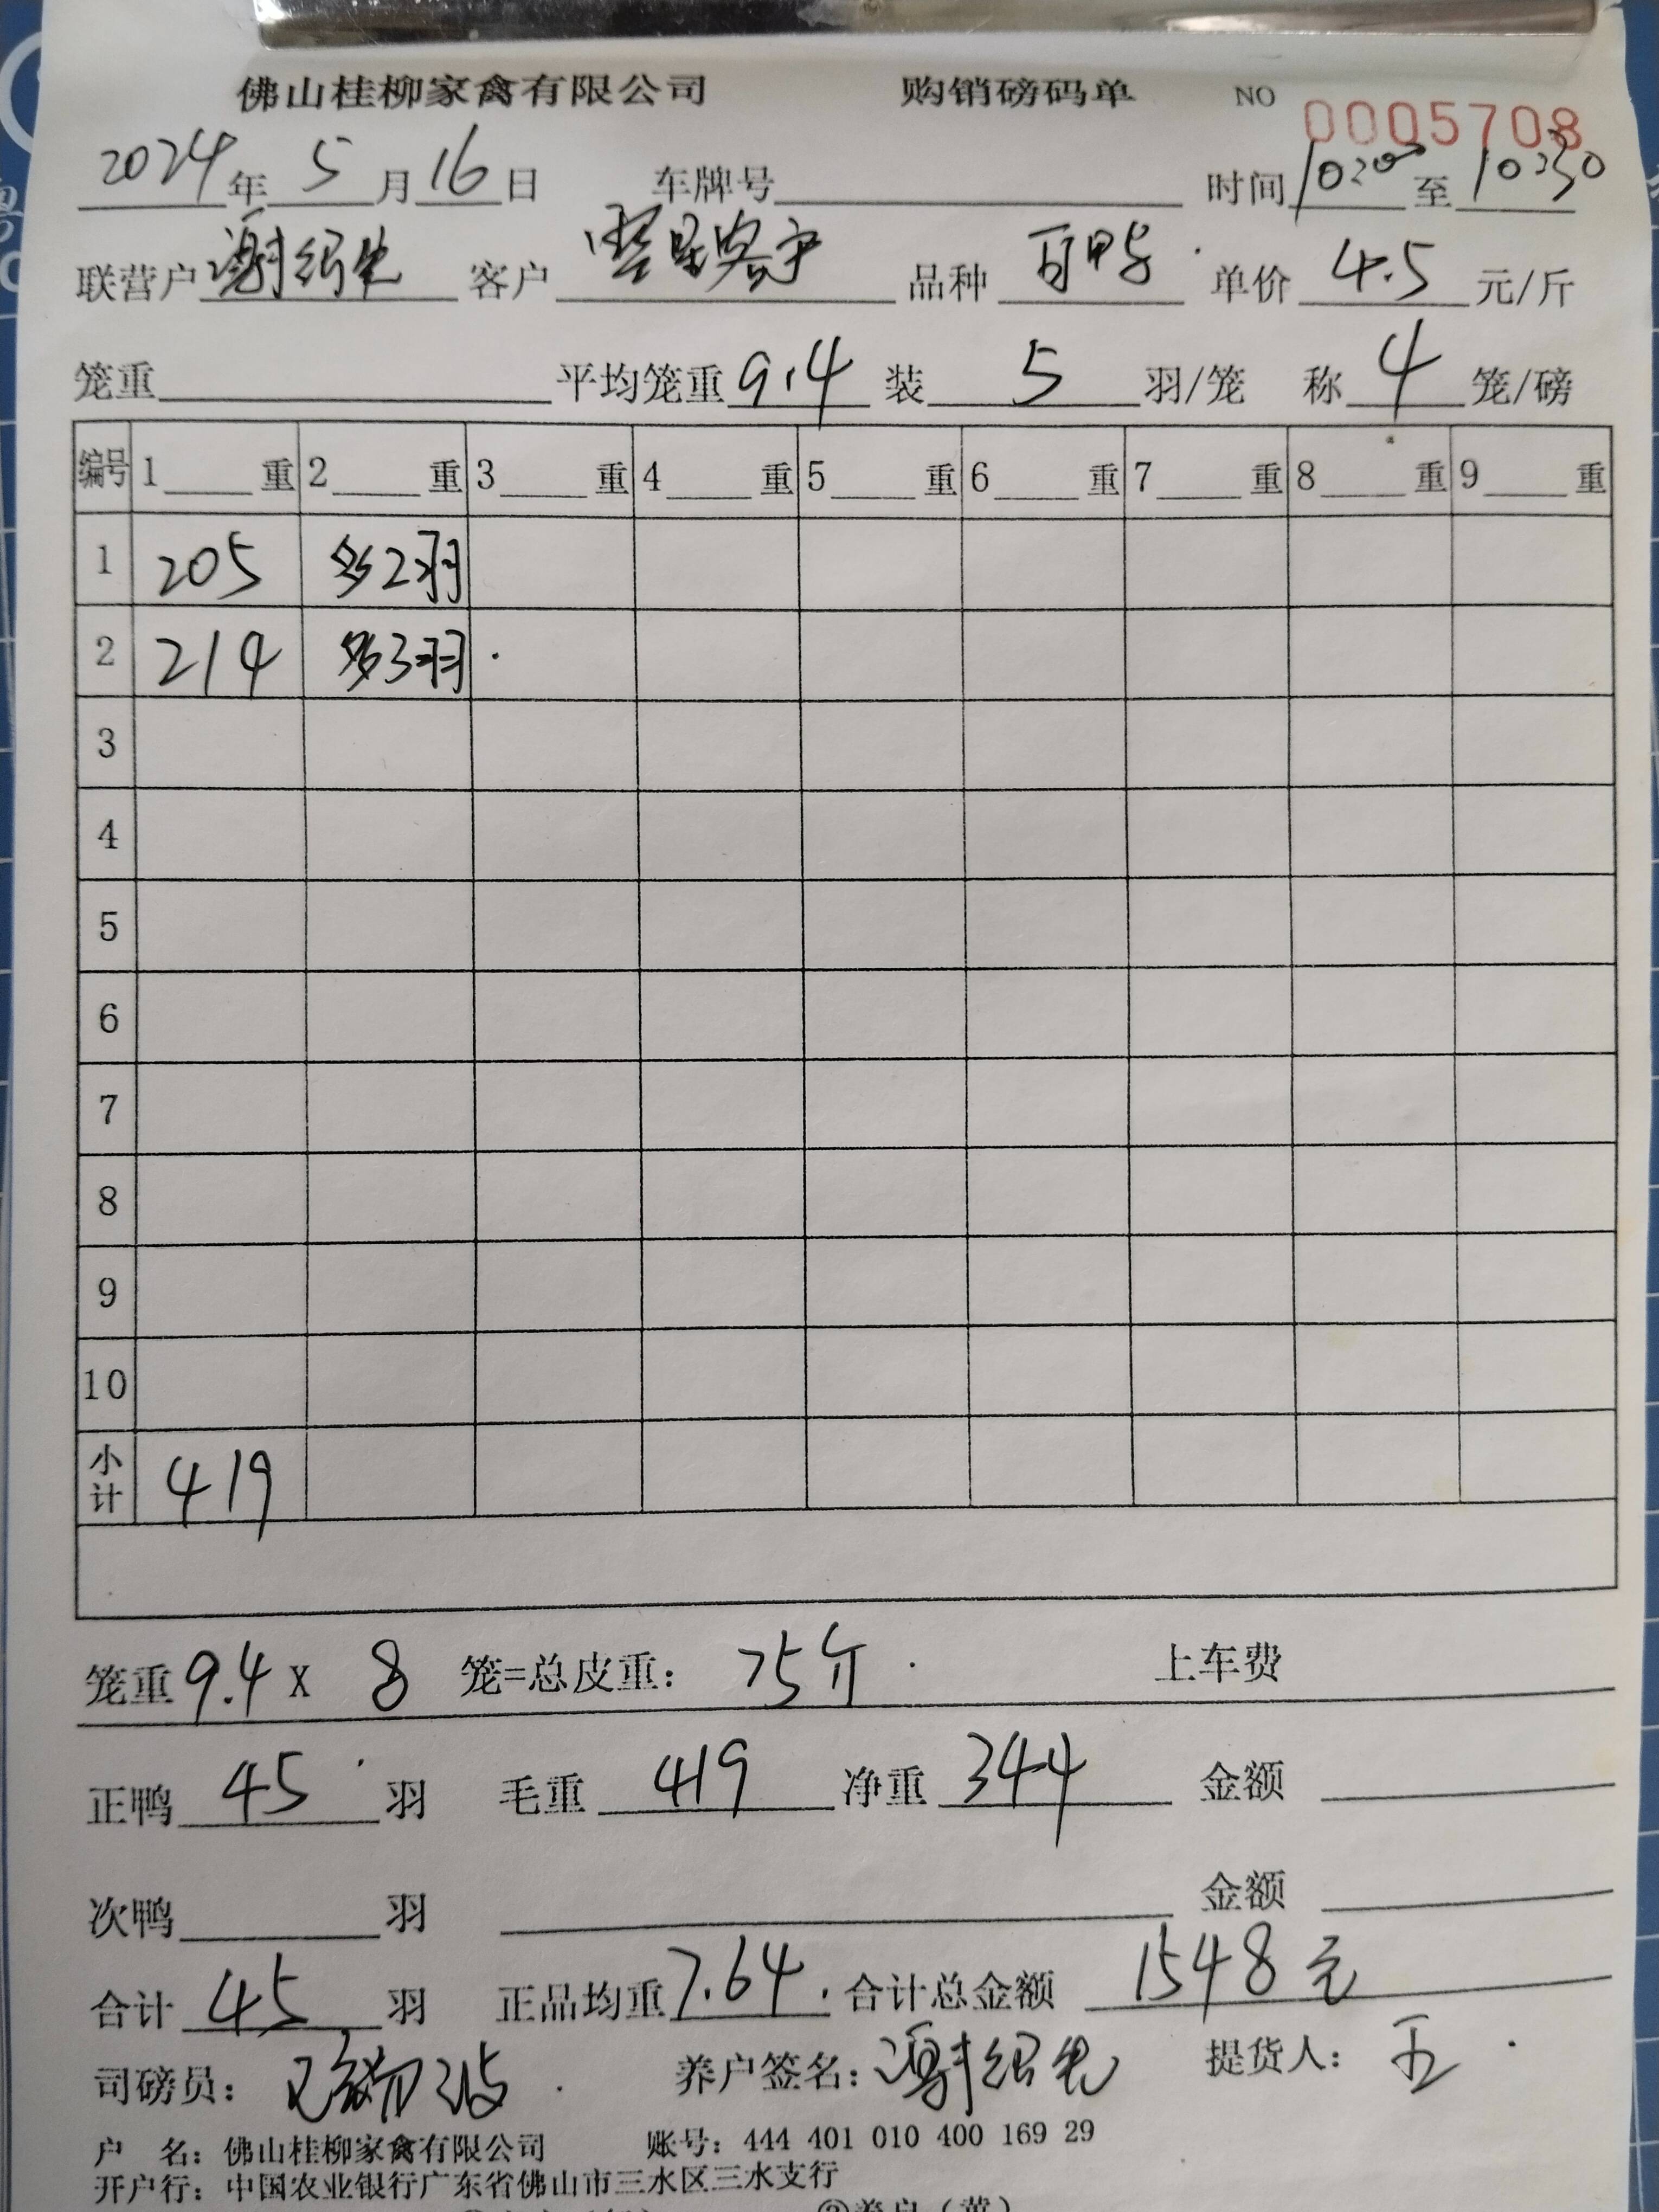 佛山桂柳家禽有限公司 购销磅码单 NO 0005708
2024年5月16日 车牌号 时间10:20至10:30
联营户 谢绍先 客户 零星客户 品种 百甲鸭 单价 4.5 元/斤
笼重 平均笼重 9.4 装 5 羽/笼 称 4 笼/磅
编号 1 重 2 重 3 重 4 重 5 重 6 重 7 重 8 重 9 重
1 205 多2羽
2 214 多3羽
3
4
5
6
7
8
9
10
小计 419
笼重 9.4 X 8 笼=总皮重: 75斤 上车费
正鸭 45 羽 毛重 419 净重 344 金额
次鸭 羽 金额
合计 45 羽 正品均重 7.64 合计总金额 1548元
司磅员: 养户签名: 谢绍先 提货人: 王
户 名: 佛山桂柳家禽有限公司 账号: 444 401 010 400 169 29
开户行: 中国农业银行广东省佛山市三水区三水支行